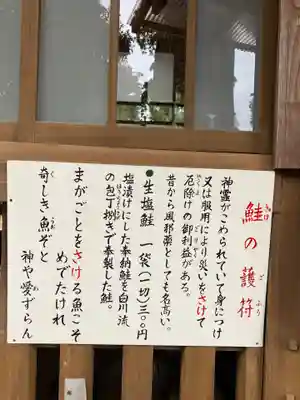 鮭の護符
さけ
ごふう
神霊がこめられていて身につけ
又は服用により災いをさけて
厄除けの御利益がある。
やくよ
ごりやく
昔から風邪薬としても名高い。
●生塩鮭 一袋(一切)三〇〇円
塩漬けにした奉納鮭を白川流
の包丁捌きで奉製した鮭。
ほうちょうさば
まがごとをさける魚こそ
めでたけれ
奇しき魚ぞと
く
神や愛ずらん
め